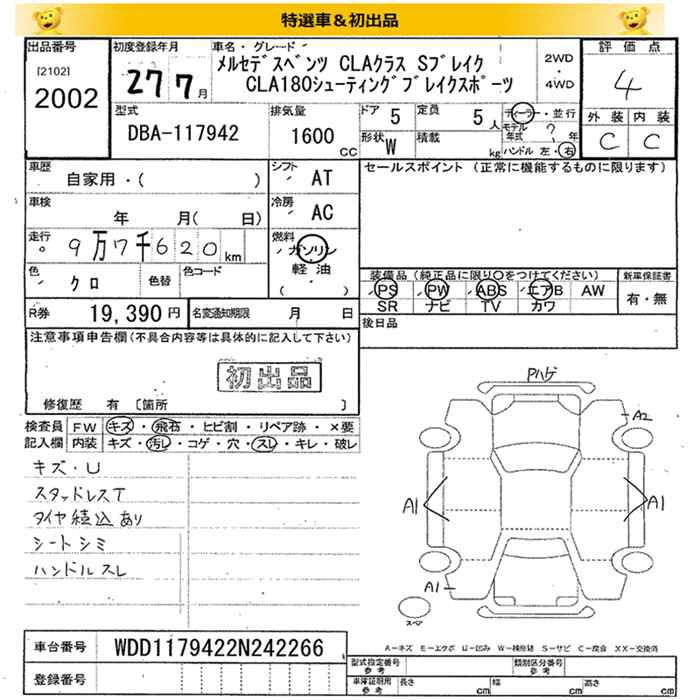 特選車＆初出品
出品番号 [2102] 2002
初度登録年月 27 7月
車名・グレード
メルセデスベンツ CLAクラス Sブレイク
CLA180シューティングブレイクスポーツ
2WD・4WD
評価点 4
外装 C 内装 C
型式 DBA-117942
排気量 1600 CC
ドア 5 定員 5人
形状 W 積載 kg
ディーラー・並行
モデル年式 ? 年
ハンドル 左・右
車歴 自家用・( )
シフト AT
セールスポイント (正常に機能するものに限ります)
車検 年 月( 日)
冷房 AC
走行 9万7千620km
燃料 ガソリン
軽油
( )
色 クロ 色替 色コード
装備品 (純正品に限り○をつけてください)
PS PW ABS エアB AW
SR ナビ TV カワ
新車保証書
有・無
R券 19,390円 名変通知期限 月 日
後日品
注意事項申告欄(不具合内容等は具体的に記入して下さい)
初出品
修復歴 有 〔箇所 〕
検査員記入欄
FW キズ・飛石・ヒビ割・リペア跡・×要
内装 キズ・汚し・コゲ・穴・スレ・キレ・破レ
キズ・U
スタッドレスT
タイヤ積込あり
シートシミ
ハンドルスレ
Pハゲ
A2
A1
A1
A1
スペア
車台番号 WDD1179422N242266
登録番号
A－キズ E－エクボ U－凹み W－補修跡 S－サビ C－腐食 XX－交換済
型式指定番号 参考 類別区分番号 参考
車庫証明用 参考 長さ cm 幅 cm 高さ cm